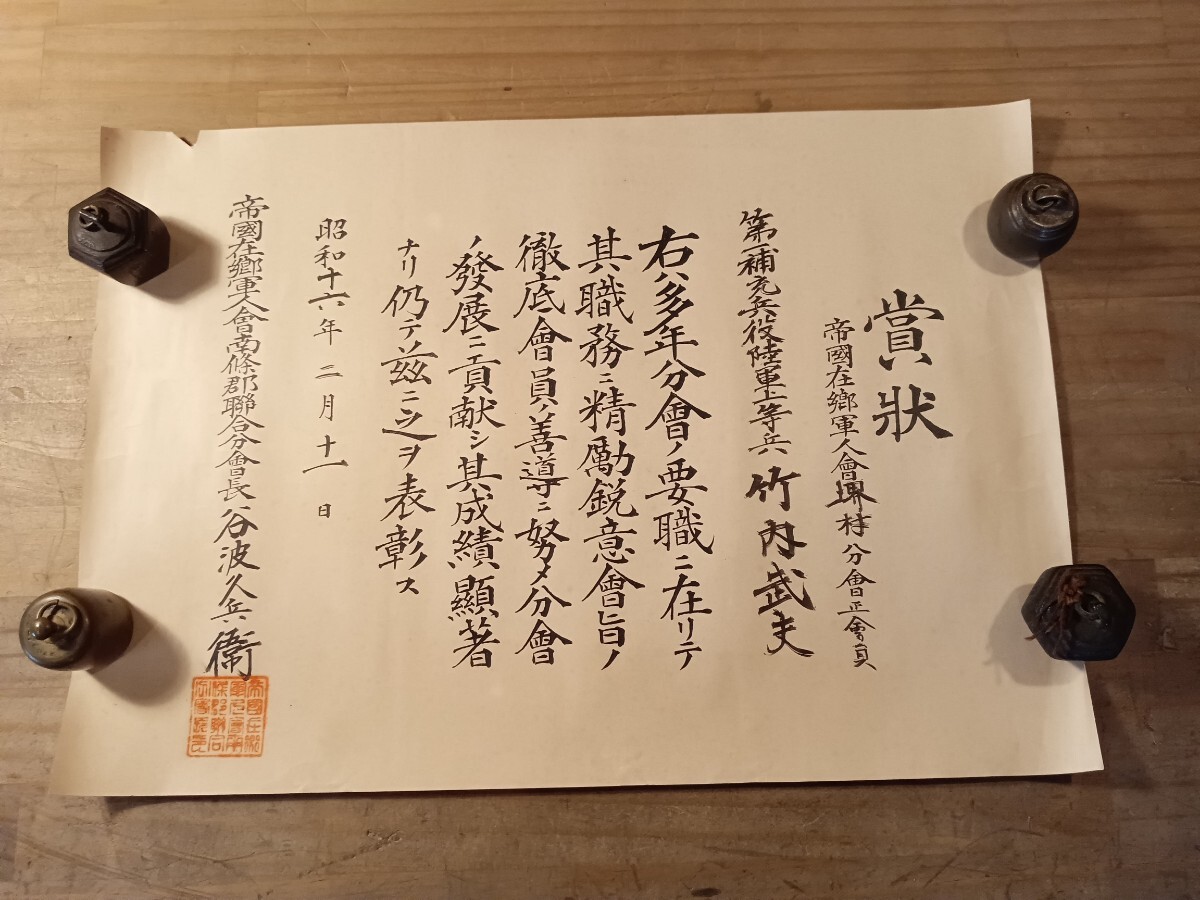 賞狀
帝國在郷軍人會堺村分會正會員
第一補充兵役陸軍上等兵 竹内武夫
右ハ多年分會ノ要職ニ在リテ
其職務ニ精勵鋭意會旨ノ
徹底會員ノ善導ニ努メ分會
ノ發展ニ貢献シ其成績顯著
ナリ仍テ茲ニ之ヲ表彰ス
昭和十六年二月十一日
帝國在郷軍人會南條郡聯合分會長谷波久兵衞